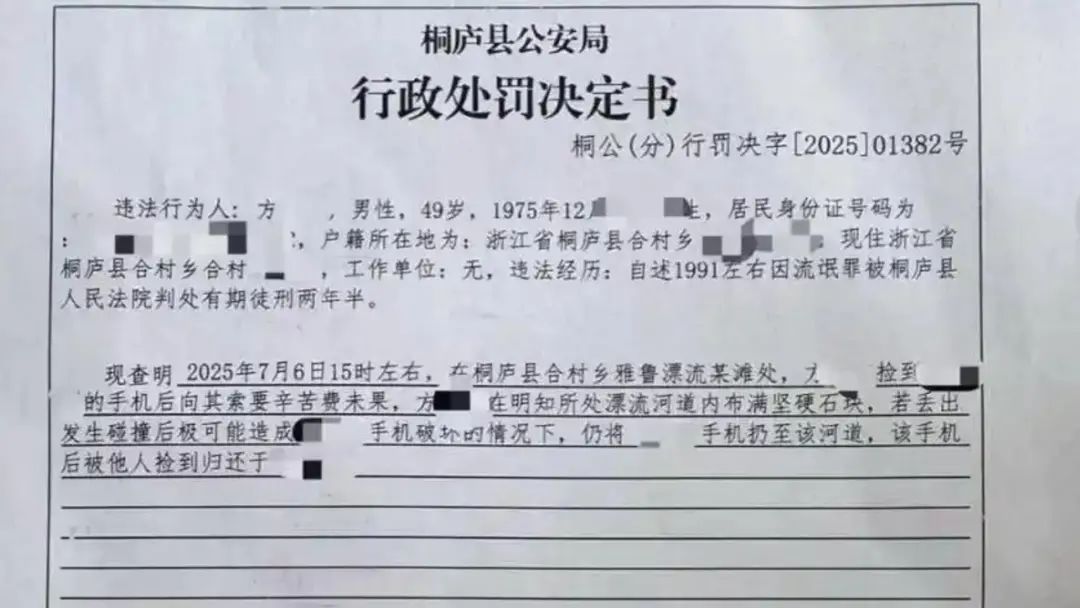 桐庐县公安局
行政处罚决定书
桐公(分)行罚决字[2025]01382号
违法行为人：方 ，男性，49岁，1975年12 生，居民身份证号码为
： ，户籍所在地为：浙江省桐庐县合村乡 现住浙江省
桐庐县合村乡合村 ，工作单位：无，违法经历：自述1991左右因流氓罪被桐庐县
人民法院判处有期徒刑两年半。
现查明 2025年7月6日15时左右，在桐庐县合村乡雅鲁漂流某滩处， 捡到
的手机后向其索要辛苦费未果，方 在明知所处漂流河道内布满坚硬石块，若丢出
发生碰撞后极可能造成 手机破坏的情况下，仍将 手机扔至该河道，该手机
后被他人捡到归还于